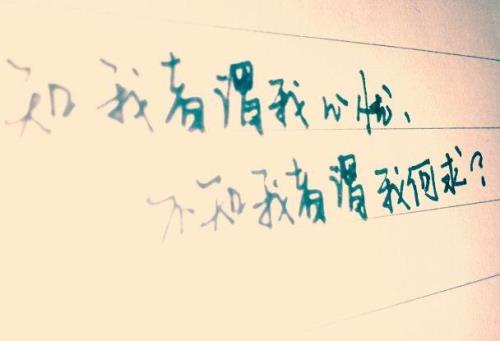 知我者谓我心忧、
不知我者谓我何求？